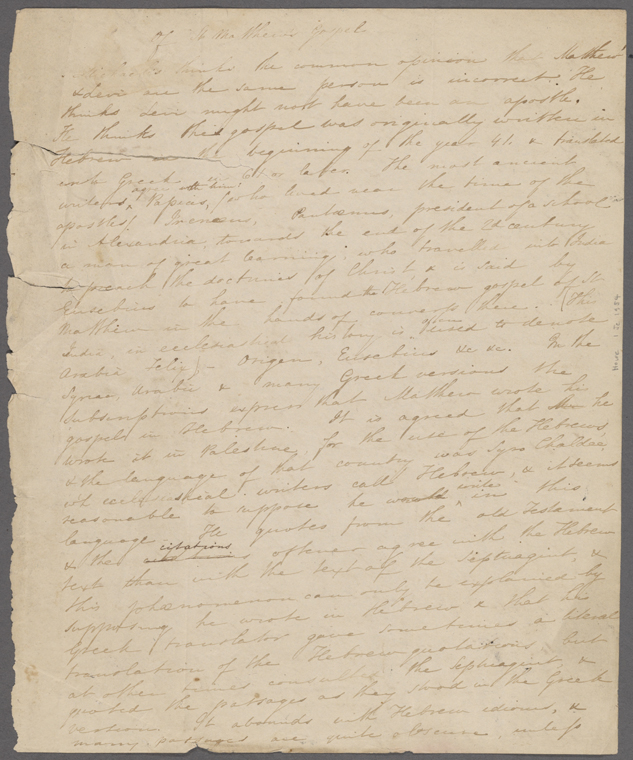 Of St Matthew's Gospel
thinks the common opinion that Matthew
& Levi are the same person is incorrect. He
thinks Levi might not have been an apostle.
He thinks this gospel was originally written in
Hebrew in the beginning of the year 41. & translated
into Greek in 61 or later. The most ancient
writers agree with him
Papius, (who lived near the time of the
apostles). Ireneus, Pantaenus, president of a school
in Alexandria, towards the end of the 2d century
a man of great learning; who travelled into India
to preach the doctrines of Christ, & is said by
Eusebius to have found the Hebrew gospel of St
Matthew in the hands of converts there. (This
India, in ecclesiastical history is used to denote
Arabia Felix) - Origen, Eusebius &c &c. In the
Syriac, Arabic & many Greek versions the
subscriptions express that Matthew wrote his
gospel in Hebrew. It is agreed that he
wrote it in Palestine, for the use of the Hebrews
& the language of that country was Syro Chaldaic
wh ecclesiastical writers call Hebrew, & it seems
reasonable to suppose he would write in this
language. He quotes from the old Testament
& the citations oftener agree with the Hebrew
text than with the text of the Septuagint, &
this phaenomenon can only be explained by
supposing he wrote in Hebrew & that his
Greek translator gave sometimes a literal
translation of the Hebrew quotations but
at other times consulted the Septuagint, &
quoted the passages as they stood in the Greek
version. It abounds with Hebrew idioms, &
many passages are quite obscure, unless